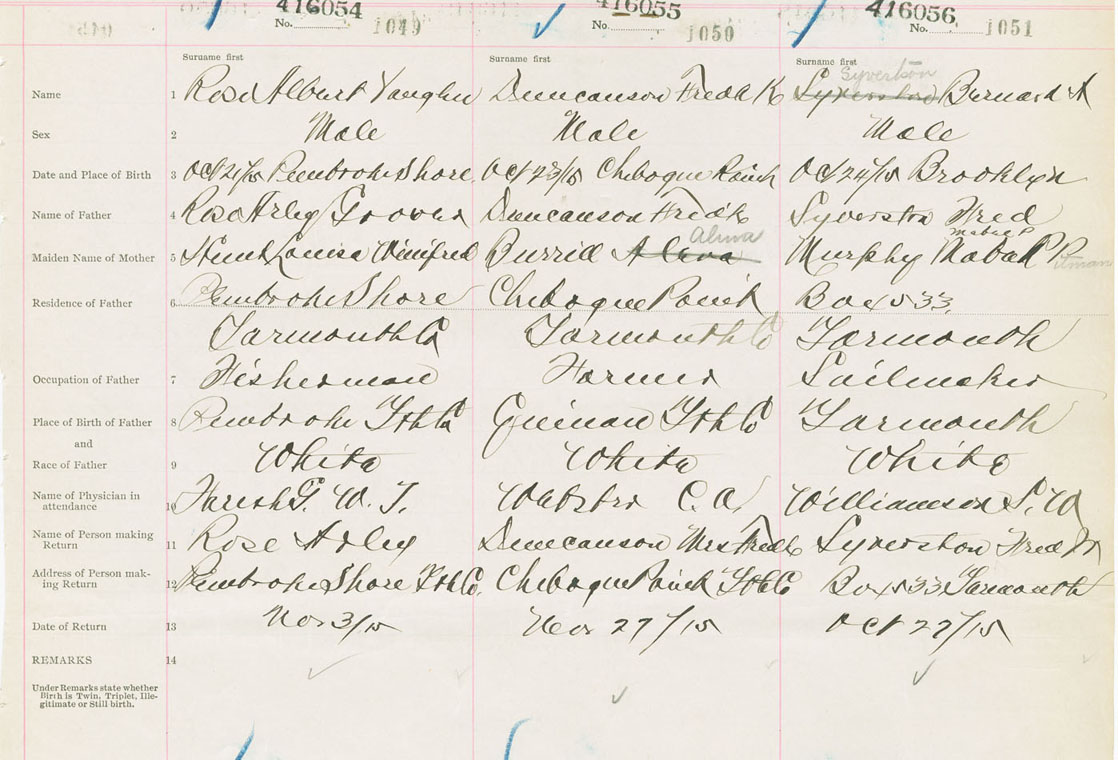 416054 416055 416056
No. 1049 No. 1050 No. 1051
Surname first Surname first Surname first
Syverston
Name 1 Rose Albert Vaughn Duncanson Fredk K Bernard A
Sex 2 Male Male Male
Date and Place of Birth 3 Oct 21/15 Pembroke Shore Oct 23/15 Chebogue Point Oct 24/15 Brooklyn
Name of Father 4 Rose Arley Grover Duncanson Fredk Syverston Fred
Alma Mabel P
Maiden Name of Mother 5 Hunt Louisa Winifred Burrill Alena Murphy Mabel P Pitman
Residence of Father 6 Pembroke Shore Chebogue Point Box 533
Yarmouth Co Yarmouth Co Yarmouth
Occupation of Father 7 Fisherman Farmer Sailmaker
Place of Birth of Father 8 Pembroke Yth Co Quinan Yth Co Yarmouth
and
Race of Father 9 White White White
Name of Physician in
attendance 10 W. T. Webster C. A. Williamson S. W
Name of Person making
Return 11 Rose Arley Duncanson Mrs Fredk Syverston Fred
Address of Person mak-
ing Return 12 Pembroke Shore Yth Co. Chebogue Point Yth Co Box 533 Yarmouth
Date of Return 13 Nov 3/15 Nov 27/15 Oct 27/15
REMARKS 14
Under Remarks state whether
Birth is Twin, Triplet, Ille-
gitimate or Still birth.